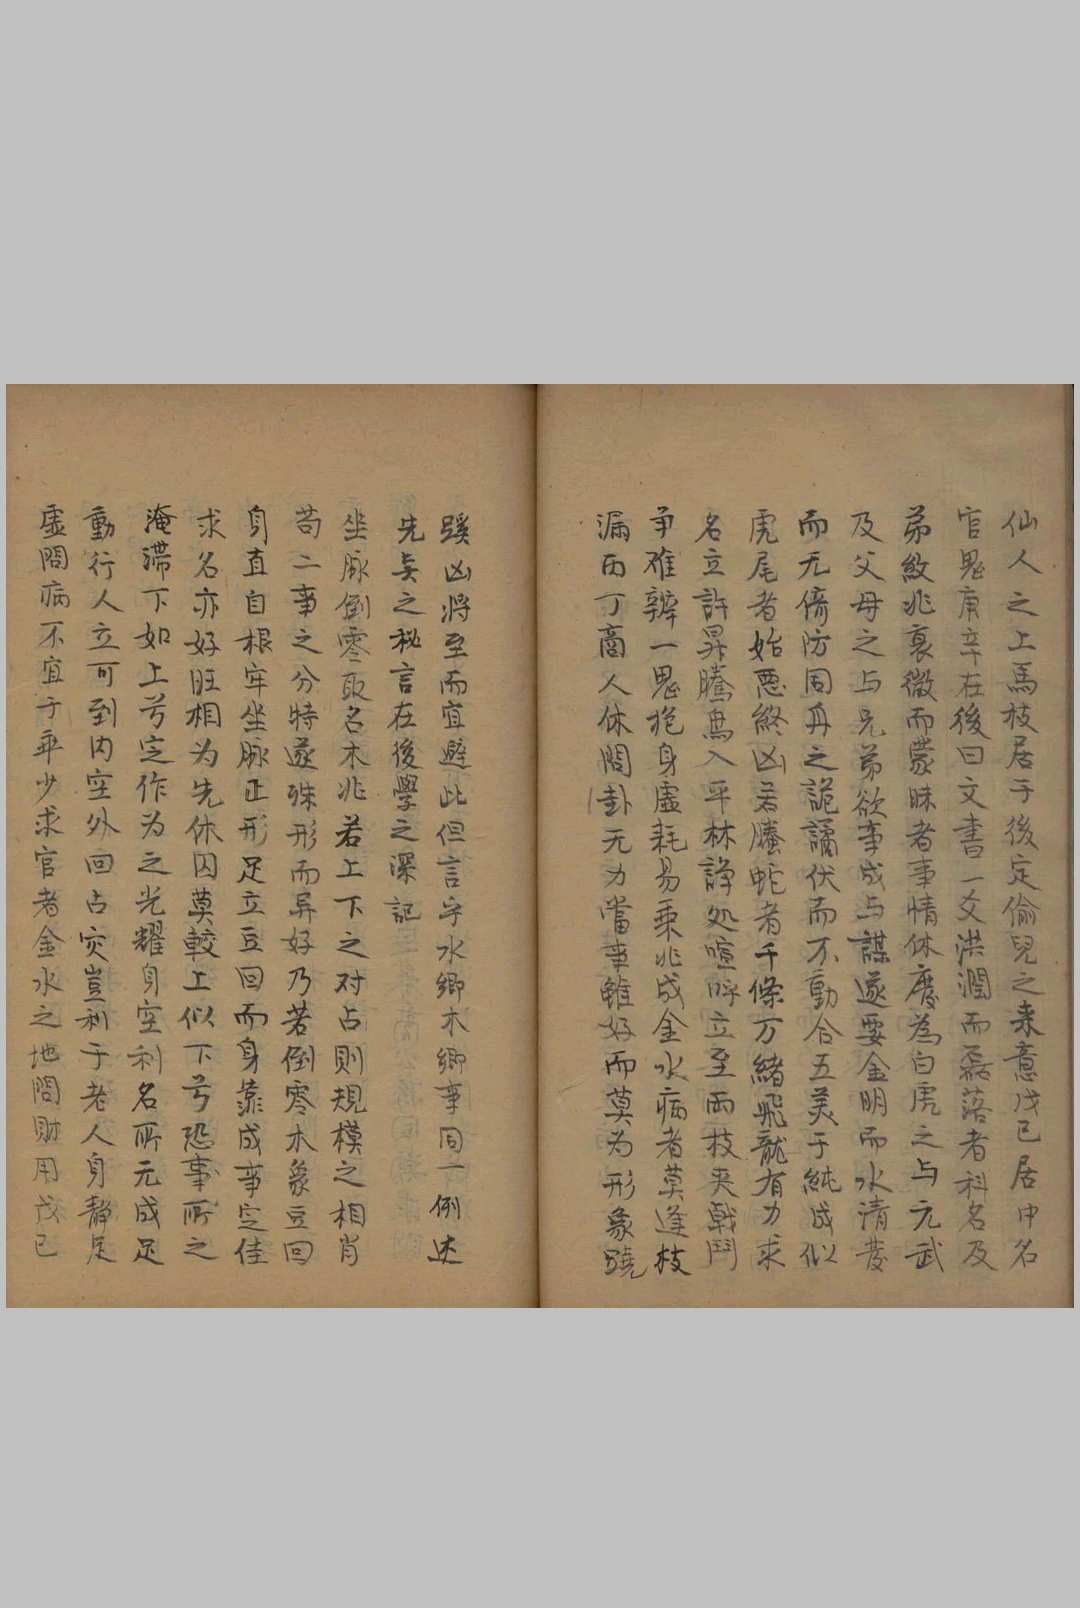 仙人之上馬枝居于後定偷兒之来意戊己居中名
官鬼庚辛在後曰文書一爻洪潤而磊落者科名及
弟紋兆衰微而蒙昧者事情休廢為白虎之与元武
及父母之与兄弟欲事成与謀遂要金明而水清發
而无倚防同舟之詭譎伏而不動合五美于純成似
虎尾者始惡終凶若騰蛇者千條万緒飛龍有力求
名立許昇騰無入平林諍処喧呼立至両枝夹戟鬥
争难辨一鬼抱身虛耗易乘兆成金水病者莫逢枝
漏丙丁商人休問卦无力當事雖好而莫为形象蹺
蹊凶将至而宜避此但言乎水鄉木鄉事同一例述
先矣之秘言在後學之深記
坐脉倒零取名木兆若上下之对占則規模之相肖
苟二事之分特遂殊形而异好乃若倒零木象豆回
身直自根牢坐脉正形足立豆回而身靠成事定佳
求名亦好旺相为先休囚莫較上似下兮恐事所之
淹滞下如上兮定作为之光耀身空利名所元成足
動行人立可到内空外回占灾豈利于老人身靜足
虛問病不宜于年少求官者金水之地問財用戊己